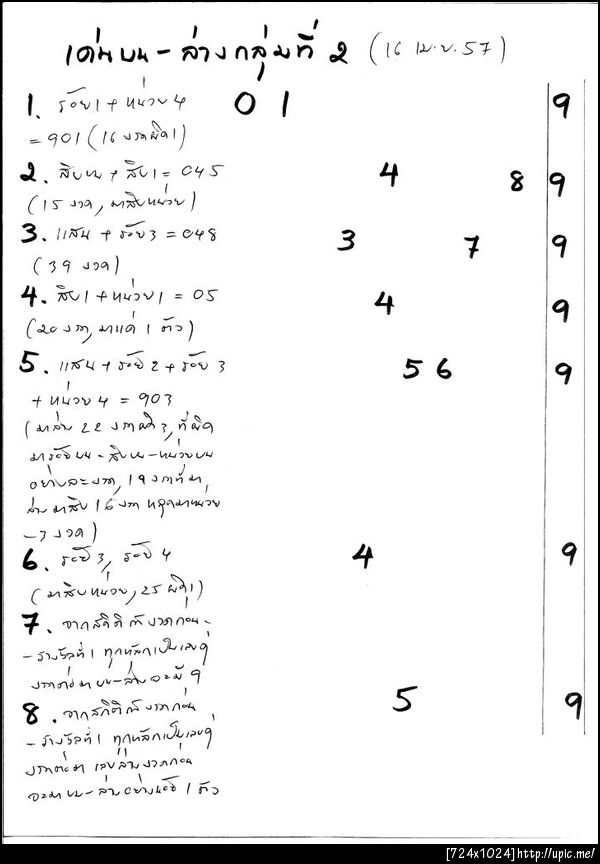 เด่นบน-ล่างกลุ่มที่ 2 (16 เม.ย. 57)
1. ร้อย 1 + หน่วย 4 0 1 9
= 901 (16 งวดผิด 1)
2. สิบบน + สิบ 1 = 045 4 8 9
(15 งวด, มาสิบหน่วย)
3. แสน + ร้อย 3 = 048 3 7 9
(39 งวด)
4. สิบ 1 + หน่วย 1 = 05 4 9
(20 งวด, มาแค่ 1 ตัว)
5. แสน + ร้อย 2 + ร้อย 3 5 6 9
+ หน่วย 4 = 903
(มาล่าง 22 งวดผิด 3, ที่ผิด
มาร้อยบน - สิบบน - หน่วยบน
อย่างละงวด, 19 งวดที่มา
ล่าง มาสิบ 16 งวด หลุดมาหน่วย
- 3 งวด)
6. ร้อย 3, ร้อย 4 4 9
(มาสิบหน่วย, 25 ผิด 1)
7. จากสถิติ งวดก่อน -
- รางวัลที่ 1 ทุกหลักเป็นเลขคู่
งวดต่อมา บน-ล่าง จะมี 9
8. จากสถิติ งวดก่อน 5 9
- รางวัลที่ 1 ทุกหลักเป็นเลขคู่
งวดต่อมา เลขล่างงวดก่อน
จะมา บน-ล่าง อย่างน้อย 1 ตัว
[724x1024]http://upic.me/